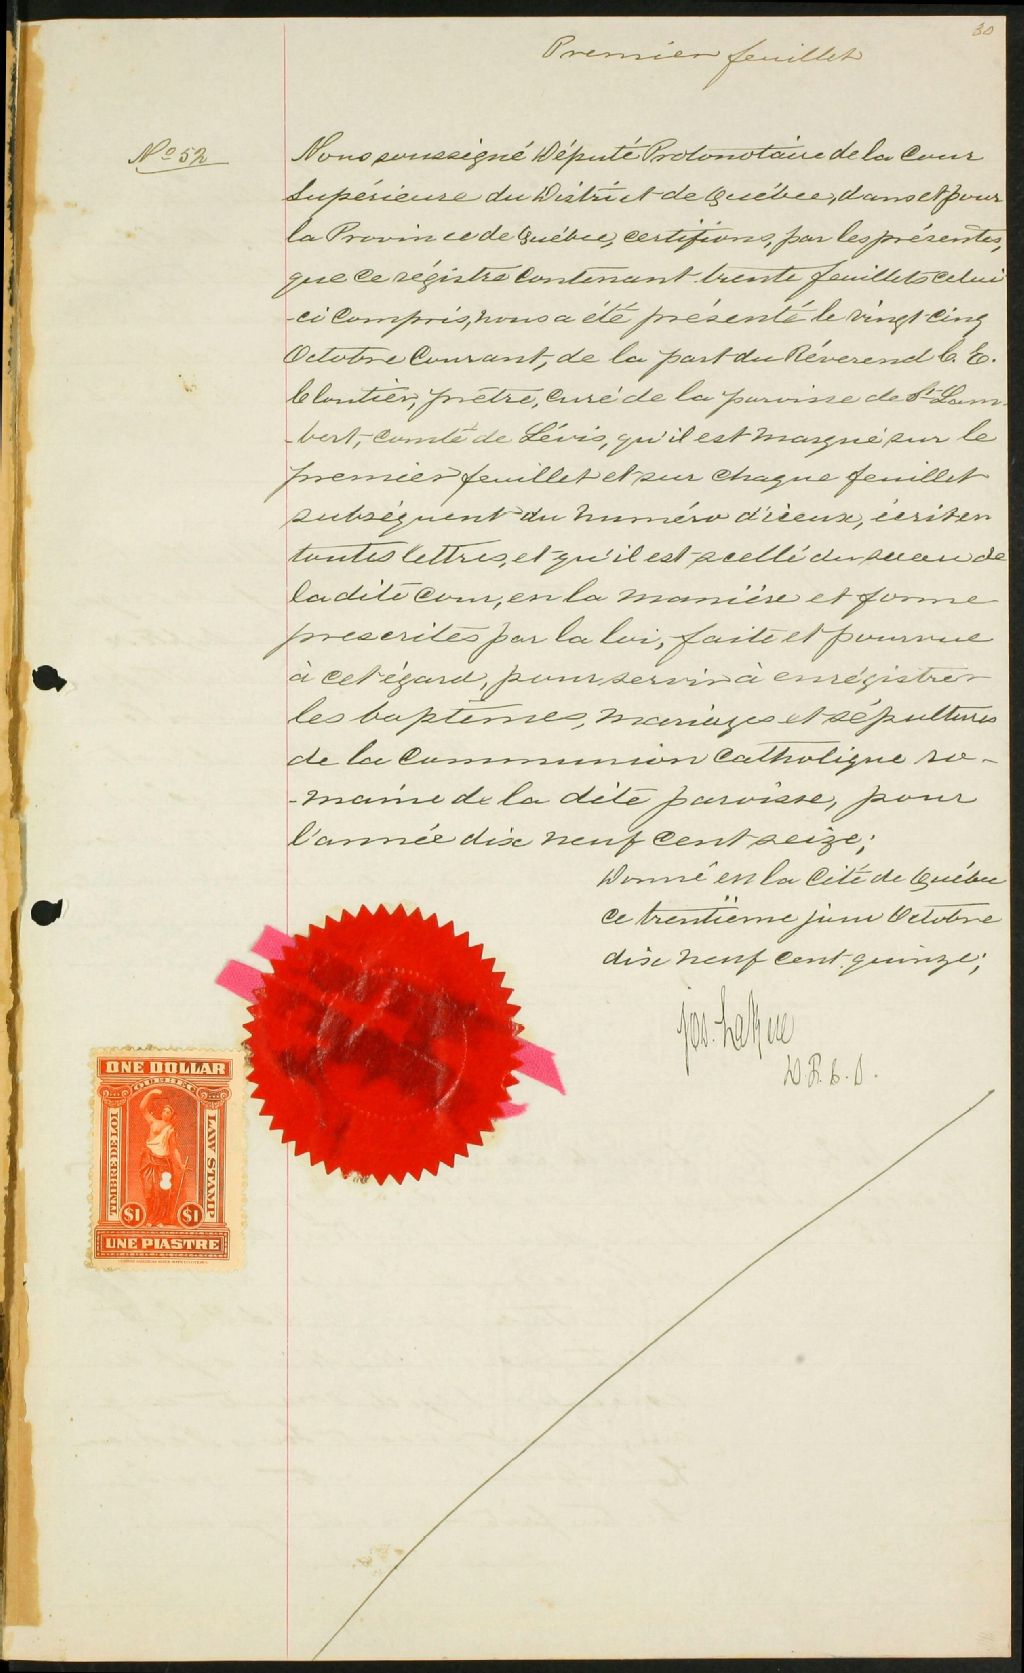 30
Premier feuillet
No 52
Nous soussigné Député Protonotaire de la Cour
Supérieure du District de Québec, dans et pour
la Province de Québec, certifions, par les présentes,
que ce régistre contenant trente feuillets celui
-ci compris, nous a été présenté le vingt-cinq
Octobre Courant, de la part du Réverend C. E.
Cloutier, prêtre, curé de la paroisse de St-Lam-
-bert, comté de Lévis, qu'il est marqué sur le
premier feuillet et sur chaque feuillet
subséquent du numéro d'iceux, écrit en
toutes lettres, et qu'il est scellé du sceau de
la dite Cour, en la manière et forme
prescrites par la loi, faite et pourvue
à cet égard, pour servir à enrégistrer
les baptêmes, mariages et sépultures
de la Communion Catholique ro-
-maine de la dite paroisse, pour
l'année dix neuf cent seize;
Donné en la Cité de Québec
ce trentième jour Octobre
dix neuf cent quinze;
Jos. LaRue
D.P.C.S.
ONE DOLLAR
QUEBEC
TIMBRE DE LOI
LAW STAMP
$1 $1
UNE PIASTRE